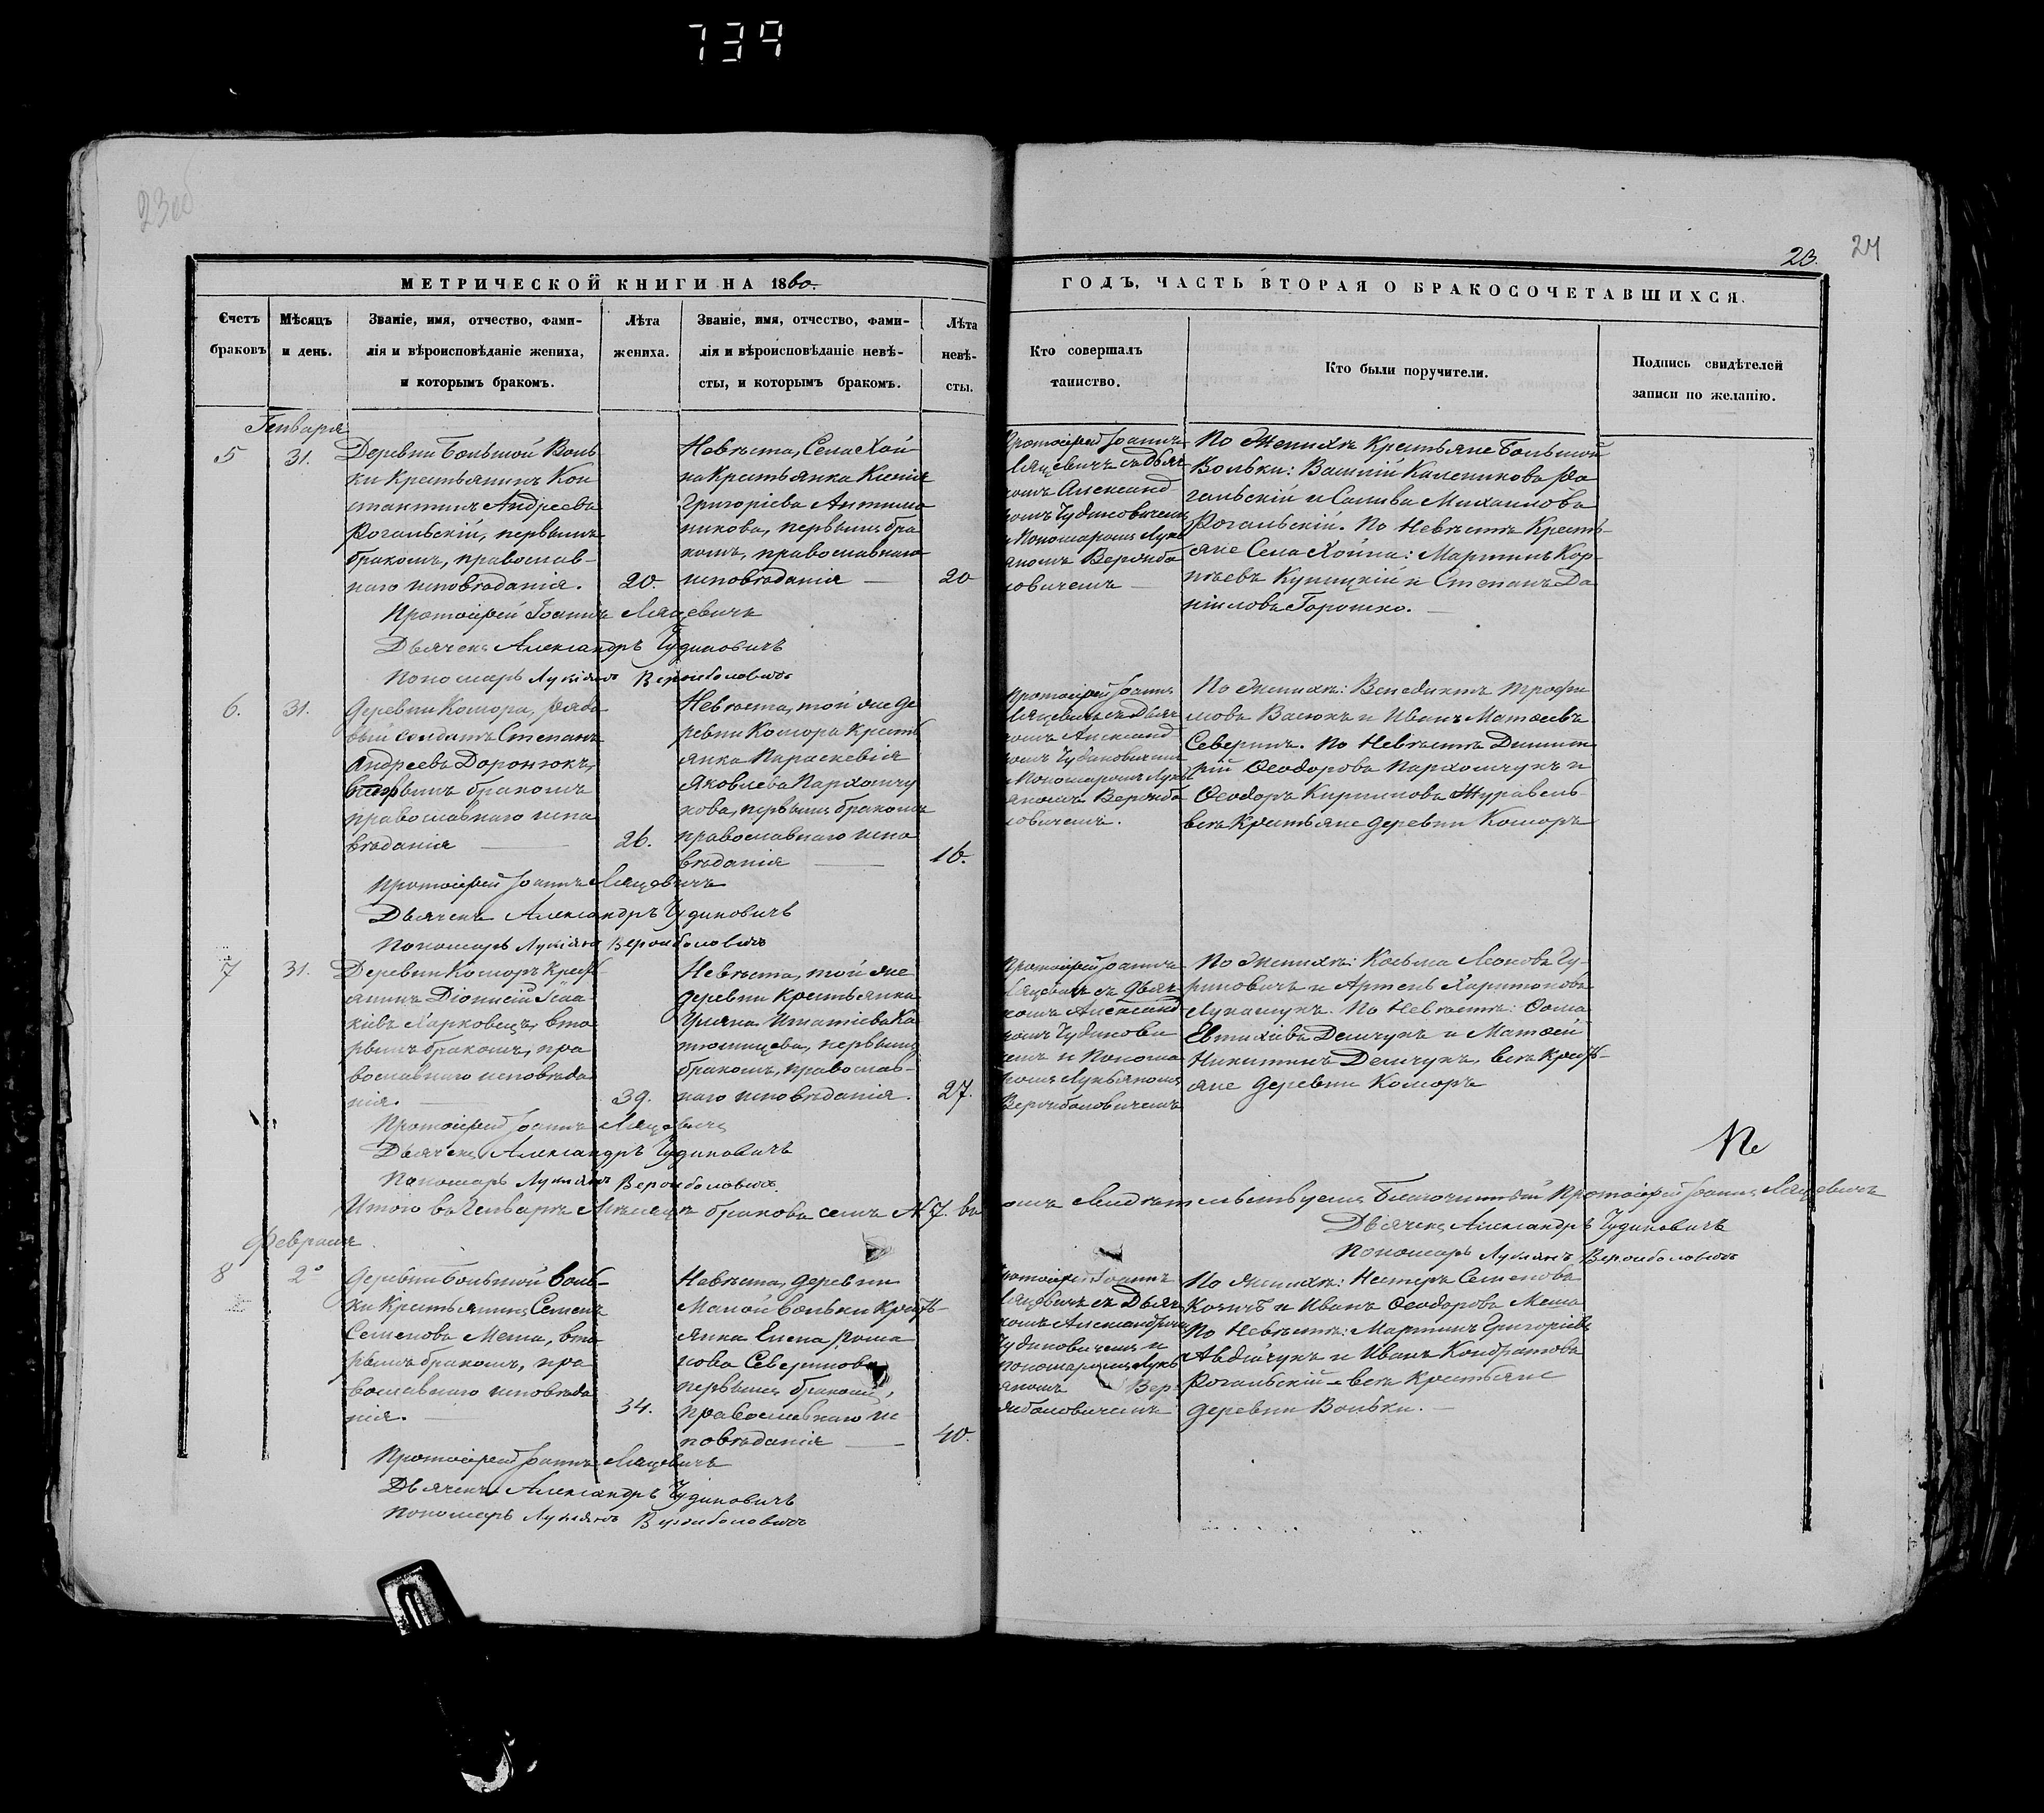 739
23об
23.
24
МЕТРИЧЕСКОЙ КНИГИ НА 1860
ГОДЪ, ЧАСТЬ ВТОРАЯ О БРАКОСОЧЕТАВШИХСЯ.
Счетъ
браковъ
Мѣсяцъ
и день.
Званіе, имя, отчество, фами-
лія и вѣроисповѣданіе жениха,
и которымъ бракомъ.
Лѣта
жениха.
Званіе, имя, отчество, фами-
лія и вѣроисповѣданіе невѣ-
сты, и которымъ бракомъ.
Лѣта
невѣ-
сты.
Кто совершалъ
таинство.
Кто были поручители.
Подпись свидѣтелей
записи по желанію.
Генваря
5
31.
Деревни Большой Воль
ки Крестьянинъ Кон
стантинъ Андреевъ
Рогальскій, первымъ
бракомъ, православ-
наго исповѣданія.
20
Невѣста, Села Хой
на Крестьянка Ксенія
Григоріева Антипо
никова, первымъ бра
комъ, православнаго
исповѣданія
20
Протоіерей Іоаннъ
Ляцевичъ съ дьяч
комъ Александ
ромъ Чудиновичемъ
и Пономаромъ Лукі
яномъ Верочбо
ловичемъ
По Женихѣ Крестьяне Большой
Вольки: Василій Калениковъ Ро
гальскій и Савва Михаиловъ
Рогальскій. По Невѣстѣ Кресть-
яне Села Хойна: Мартинъ Кор-
нѣевъ Купицкій и Степанъ Да
ніиловъ Горошко.
Протоіерей Іоаннъ Ляцевичъ
Дьячекъ Александръ Чудиновичъ
Пономарь Лукіянъ
6.
31.
Деревни Комора, рядо
вый солдатъ Степанъ
Андреевъ Доронюкъ,
первымъ бракомъ
православнаго испо
вѣданія
26.
Невѣста, той же де
ревни Коморъ Кресть
янка Параскевія
Яковлева Пархомчу
кова, первымъ бракомъ
православнаго испо
вѣданія
16.
Протоіерей Іоаннъ
Ляцевичъ съ Дьяч
комъ Александ
ромъ Чудиновичемъ
и Пономаромъ Лукі
яномъ
ловичемъ.
По Женихѣ: Венедиктъ Трофи
мовъ Васюкъ и Иванъ Матѳеевъ
Северинъ. По Невѣстѣ Димит
рій Ѳеодоровъ Пархомчукъ и
Ѳеодоръ Кириловъ Журавель-
всѣ Крестьяне деревни Коморъ
Протоіерей Іоаннъ Ляцевичъ
Дьячекъ Александръ Чудиновичъ
Пономарь Лукіянъ
7
31.
Деревни Коморъ Крест-
янинъ Діонисій Ісаа-
кіевъ Харковецъ, вто
рымъ бракомъ, пра
вославнаго исповѣда
нія.
39.
Невѣста, той же
деревни Крестьянка
Уляна Игнатіева Ка
первымъ
бракомъ, православ-
наго исповѣданія.
27.
Протоіерей Іоаннъ
Ляцевичъ съ Дьяч-
комъ Александ
ромъ Чудинови
чемъ и Понома
ромъ Лукьяномъ
По Женихѣ: Косьма Леоновъ Гу-
риновичъ и Артемъ Харитоновъ
Лукашукъ. По Невѣстѣ: Ѳома
Евтихіевъ Демчукъ и Матѳей
Никитинъ Демчукъ, всѣ крест-
яне деревни Коморъ
Протоіерей Іоаннъ Ляцевичъ
Дьячекъ Александръ Чудиновичъ
Пономарь Лукіянъ
Итого въ Генварѣ Мѣсяцѣ браковъ семь №7. въ томъ свидѣтельствуемъ Благочинный Протоіерей Іоаннъ Ляцевичъ
Дьячекъ Александръ Чудиновичъ
Пономарь Лукіянъ
Февраля
8
2
Деревни Большой Воль-
ки Крестьянинъ Семенъ
Семеновъ Меша, вто
рымъ бракомъ, пра
вославнаго исповѣда
нія.
34.
Невѣста, деревни
Малой Вольки Крест-
янка Елена Рома
нова Северинова
первымъ бракомъ,
православнаго ис
повѣданія
40.
Протоіерей Іоаннъ
Ляцевичъ съ Дьяч
комъ Александромъ
Чудиновичемъ и
Пономаромъ Лукі
яномъ
По Женихѣ: Несторъ Семеновъ
Козичъ и Иванъ Ѳеодоровъ Меша
По Невѣстѣ: Мартинъ Григоріевъ
Авдійчукъ и Иванъ Кондратовъ
Рогальскій - всѣ крестьяне
деревни Вольки.
Протоіерей Іоаннъ Ляцевичъ
Дьячекъ Александръ Чудиновичъ
Пономарь Лукіянъ